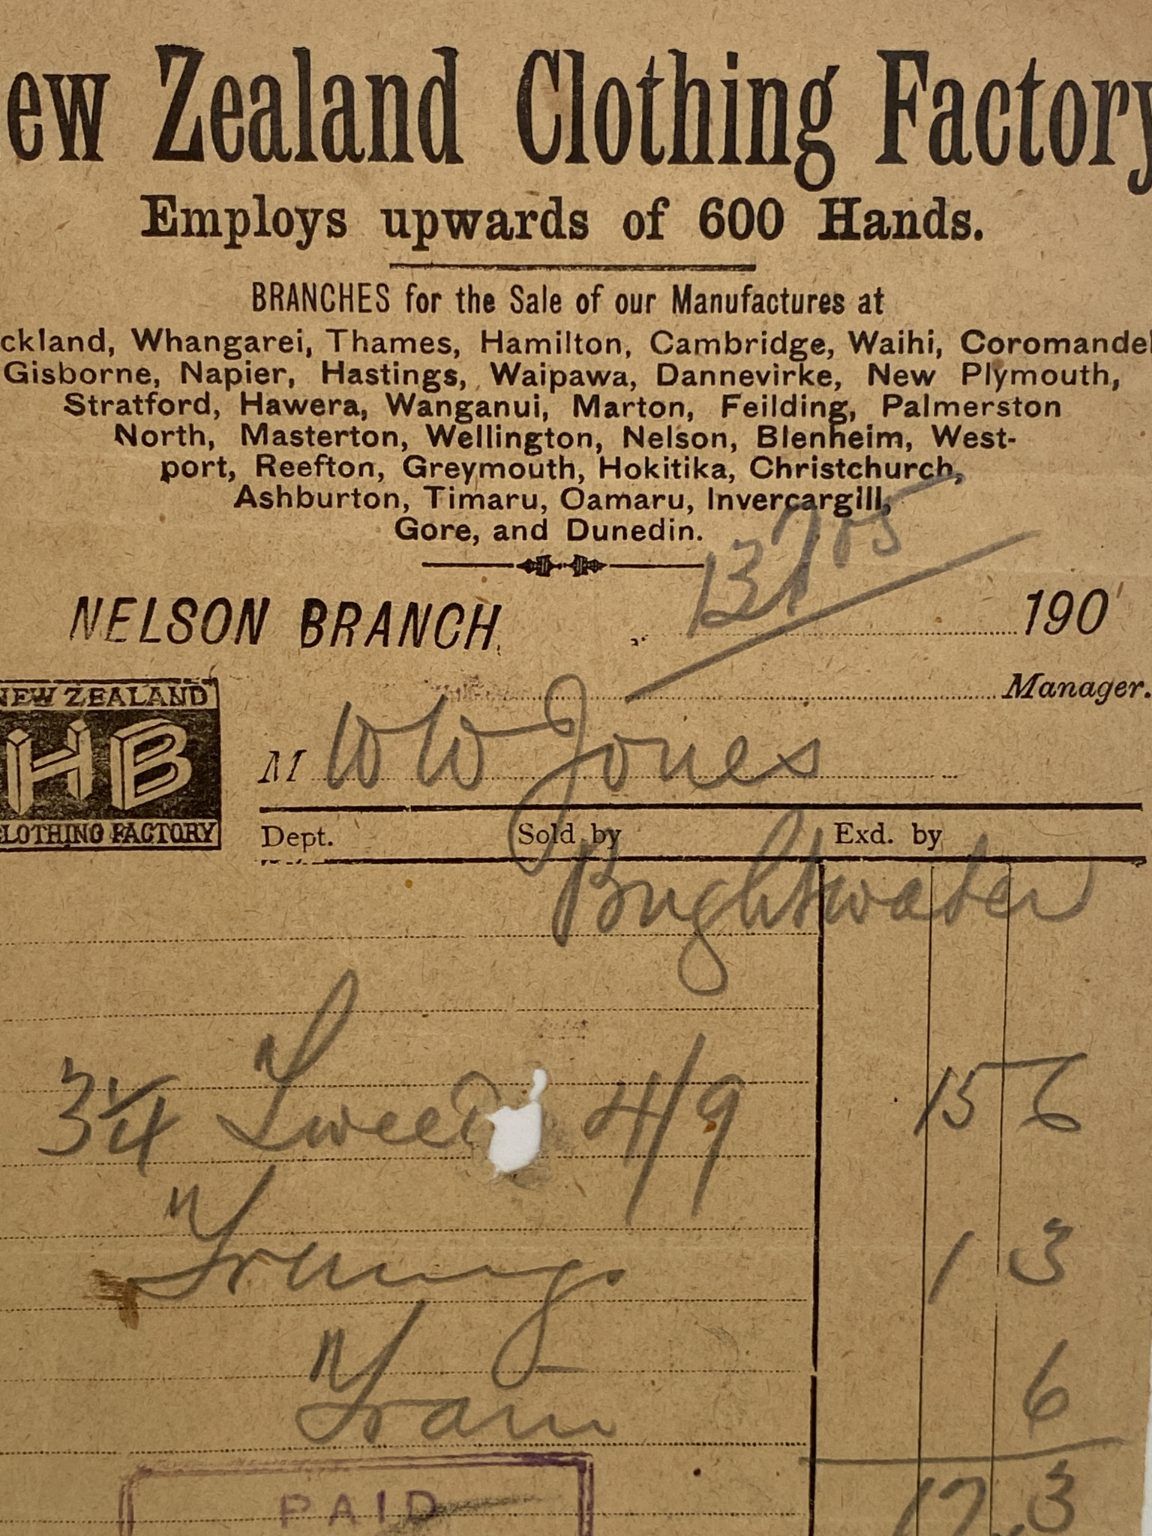 ew Zealand Clothing Factory
Employs upwards of 600 Hands.
BRANCHES for the Sale of our Manufactures at
ckland, Whangarei, Thames, Hamilton, Cambridge, Waihi, Coromandel
Gisborne, Napier, Hastings, Waipawa, Dannevirke, New Plymouth,
Stratford, Hawera, Wanganui, Marton, Feilding, Palmerston
North, Masterton, Wellington, Nelson, Blenheim, West-
port, Reefton, Greymouth, Hokitika, Christchurch,
Ashburton, Timaru, Oamaru, Invercargill,
Gore, and Dunedin.
NELSON BRANCH, 13/7/05 190
Manager.
NEW ZEALAND
HB
CLOTHING FACTORY
M W W Jones
Dept. Sold by Exd. by
Brightwater
3 1/4 Tweed 4/9 15 6
1 3
Tram 6
17.3
PAID